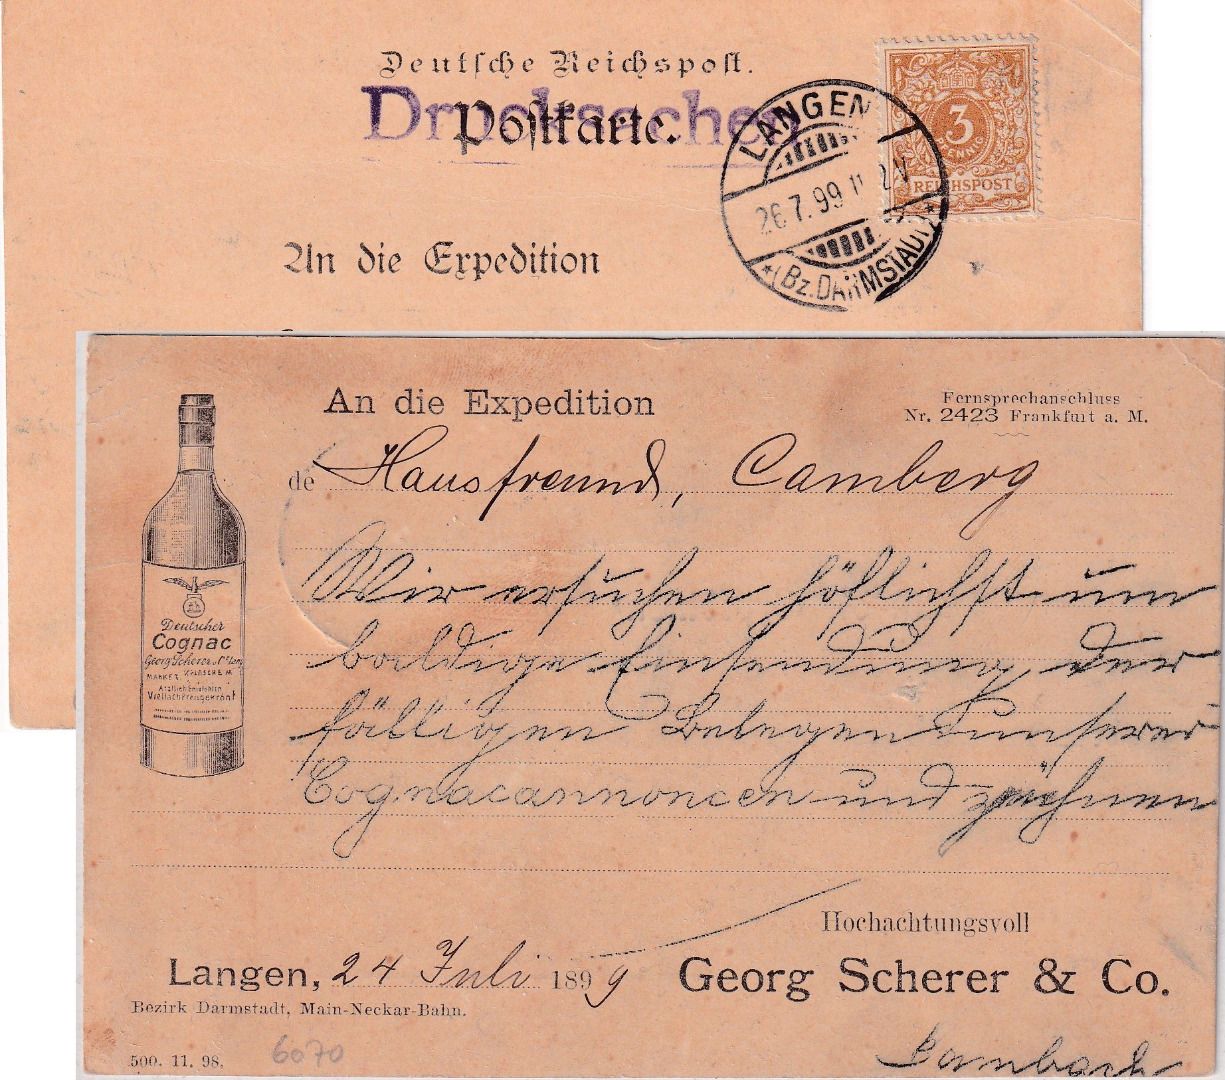 Deutsche Reichspost.
Drucksachen
Postkarte.
LANGEN
26.7.99
*(Bz. DARMSTADT)*
3
PFENNIG
REICHSPOST
An die Expedition
An die Expedition
Fernsprechanschluss
Nr. 2423 Frankfurt a. M.
de Hausfreund, Camberg
Wir ersuchen höflichst um
baldige Einsendung der
fälligen Belege unserer
Cognacannoncen und zeichnen
Deutscher
Cognac
Georg Scherer & C° Langen
Vielfach preisgekrönt
Hochachtungsvoll
Langen, 24 Juli 1899
Georg Scherer & Co.
Bezirk Darmstadt, Main-Neckar-Bahn.
500. 11. 98.
6070